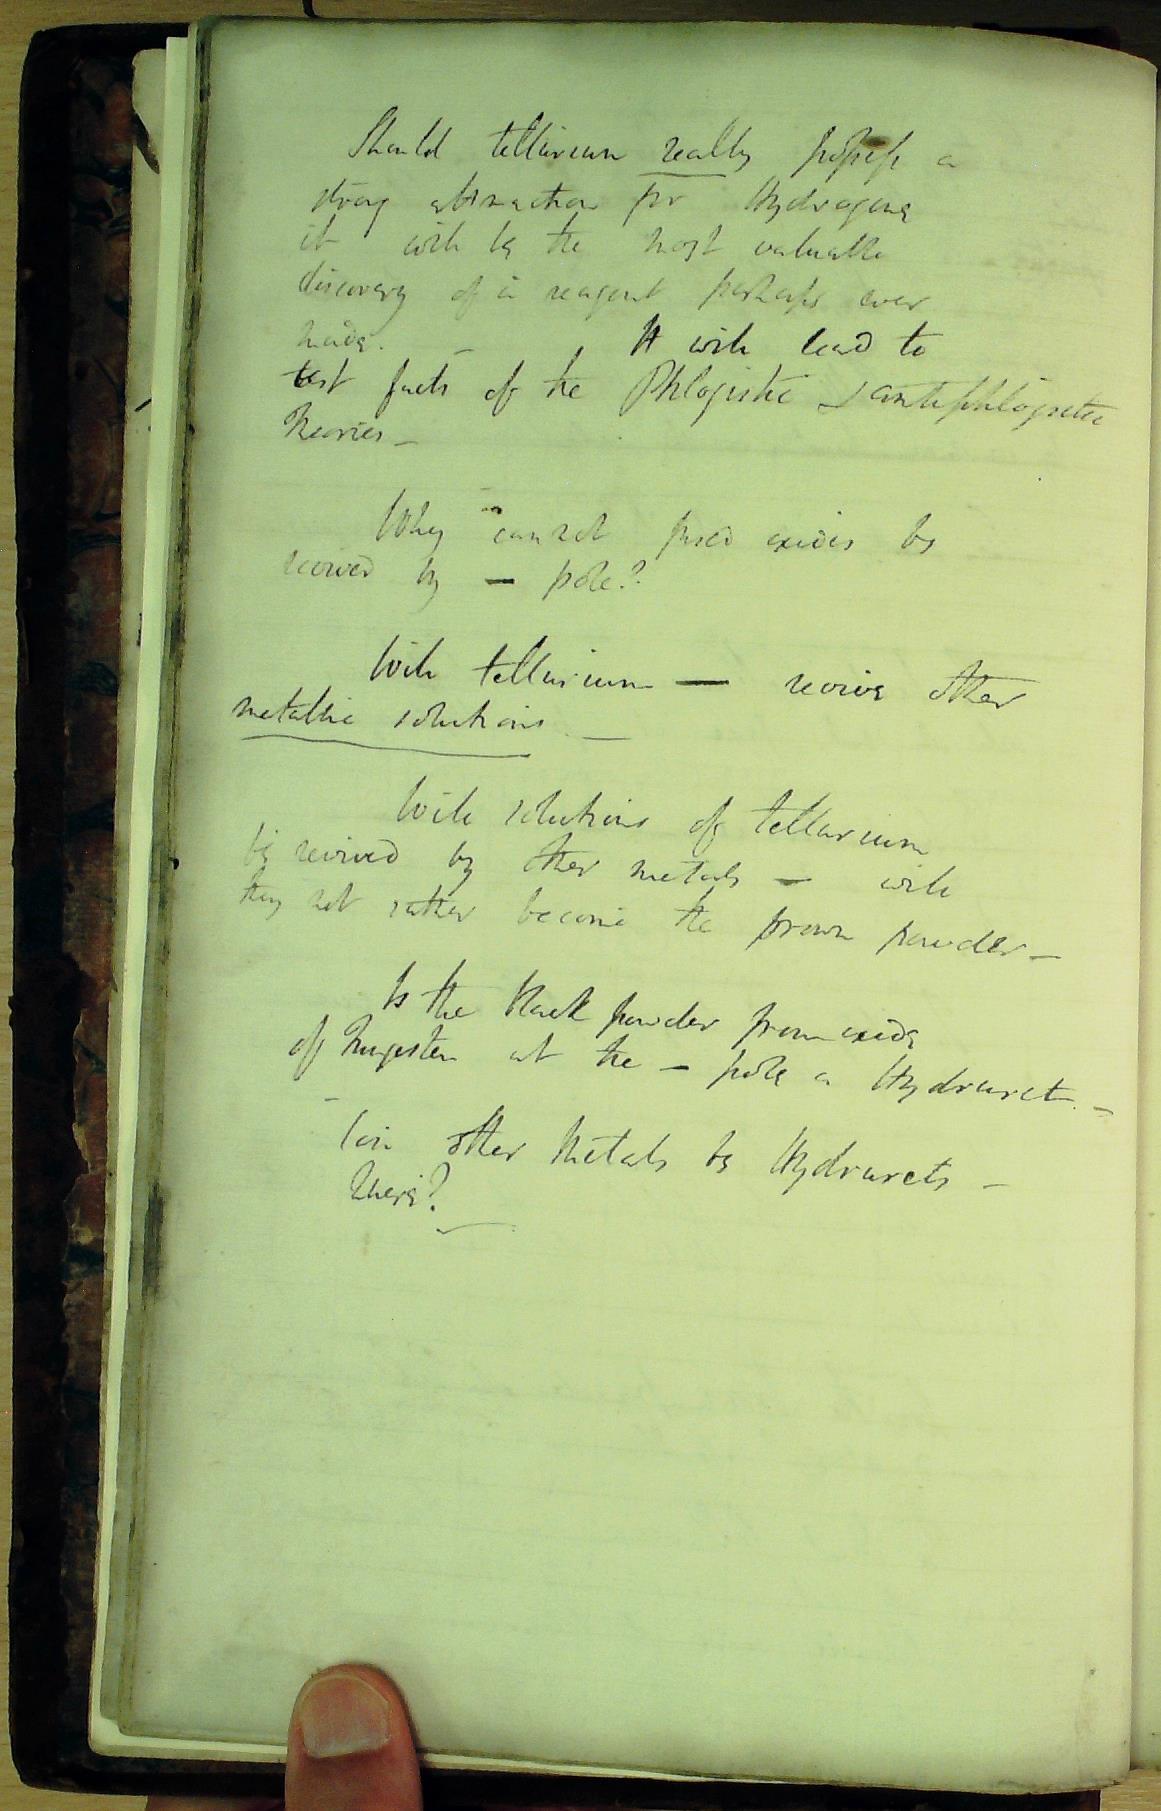 Should tellurium really possess a
strong attraction for Hydrogene
it will be the most valuable
discovery of a reagent perhaps ever
made. It will lead to
test facts of the Phlogistic & antiphlogistic
Theories –
Why cannot fused oxides be
revived by – pole?
Will tellurium — revive other
metallic solutions –
Will solutions of tellurium
be revived by other metals – will
they not rather become the brown powder –
Is the black powder from oxide
of Tungsten at the – pole a Hydruret –
Can other Metals be Hydrurets –
there?